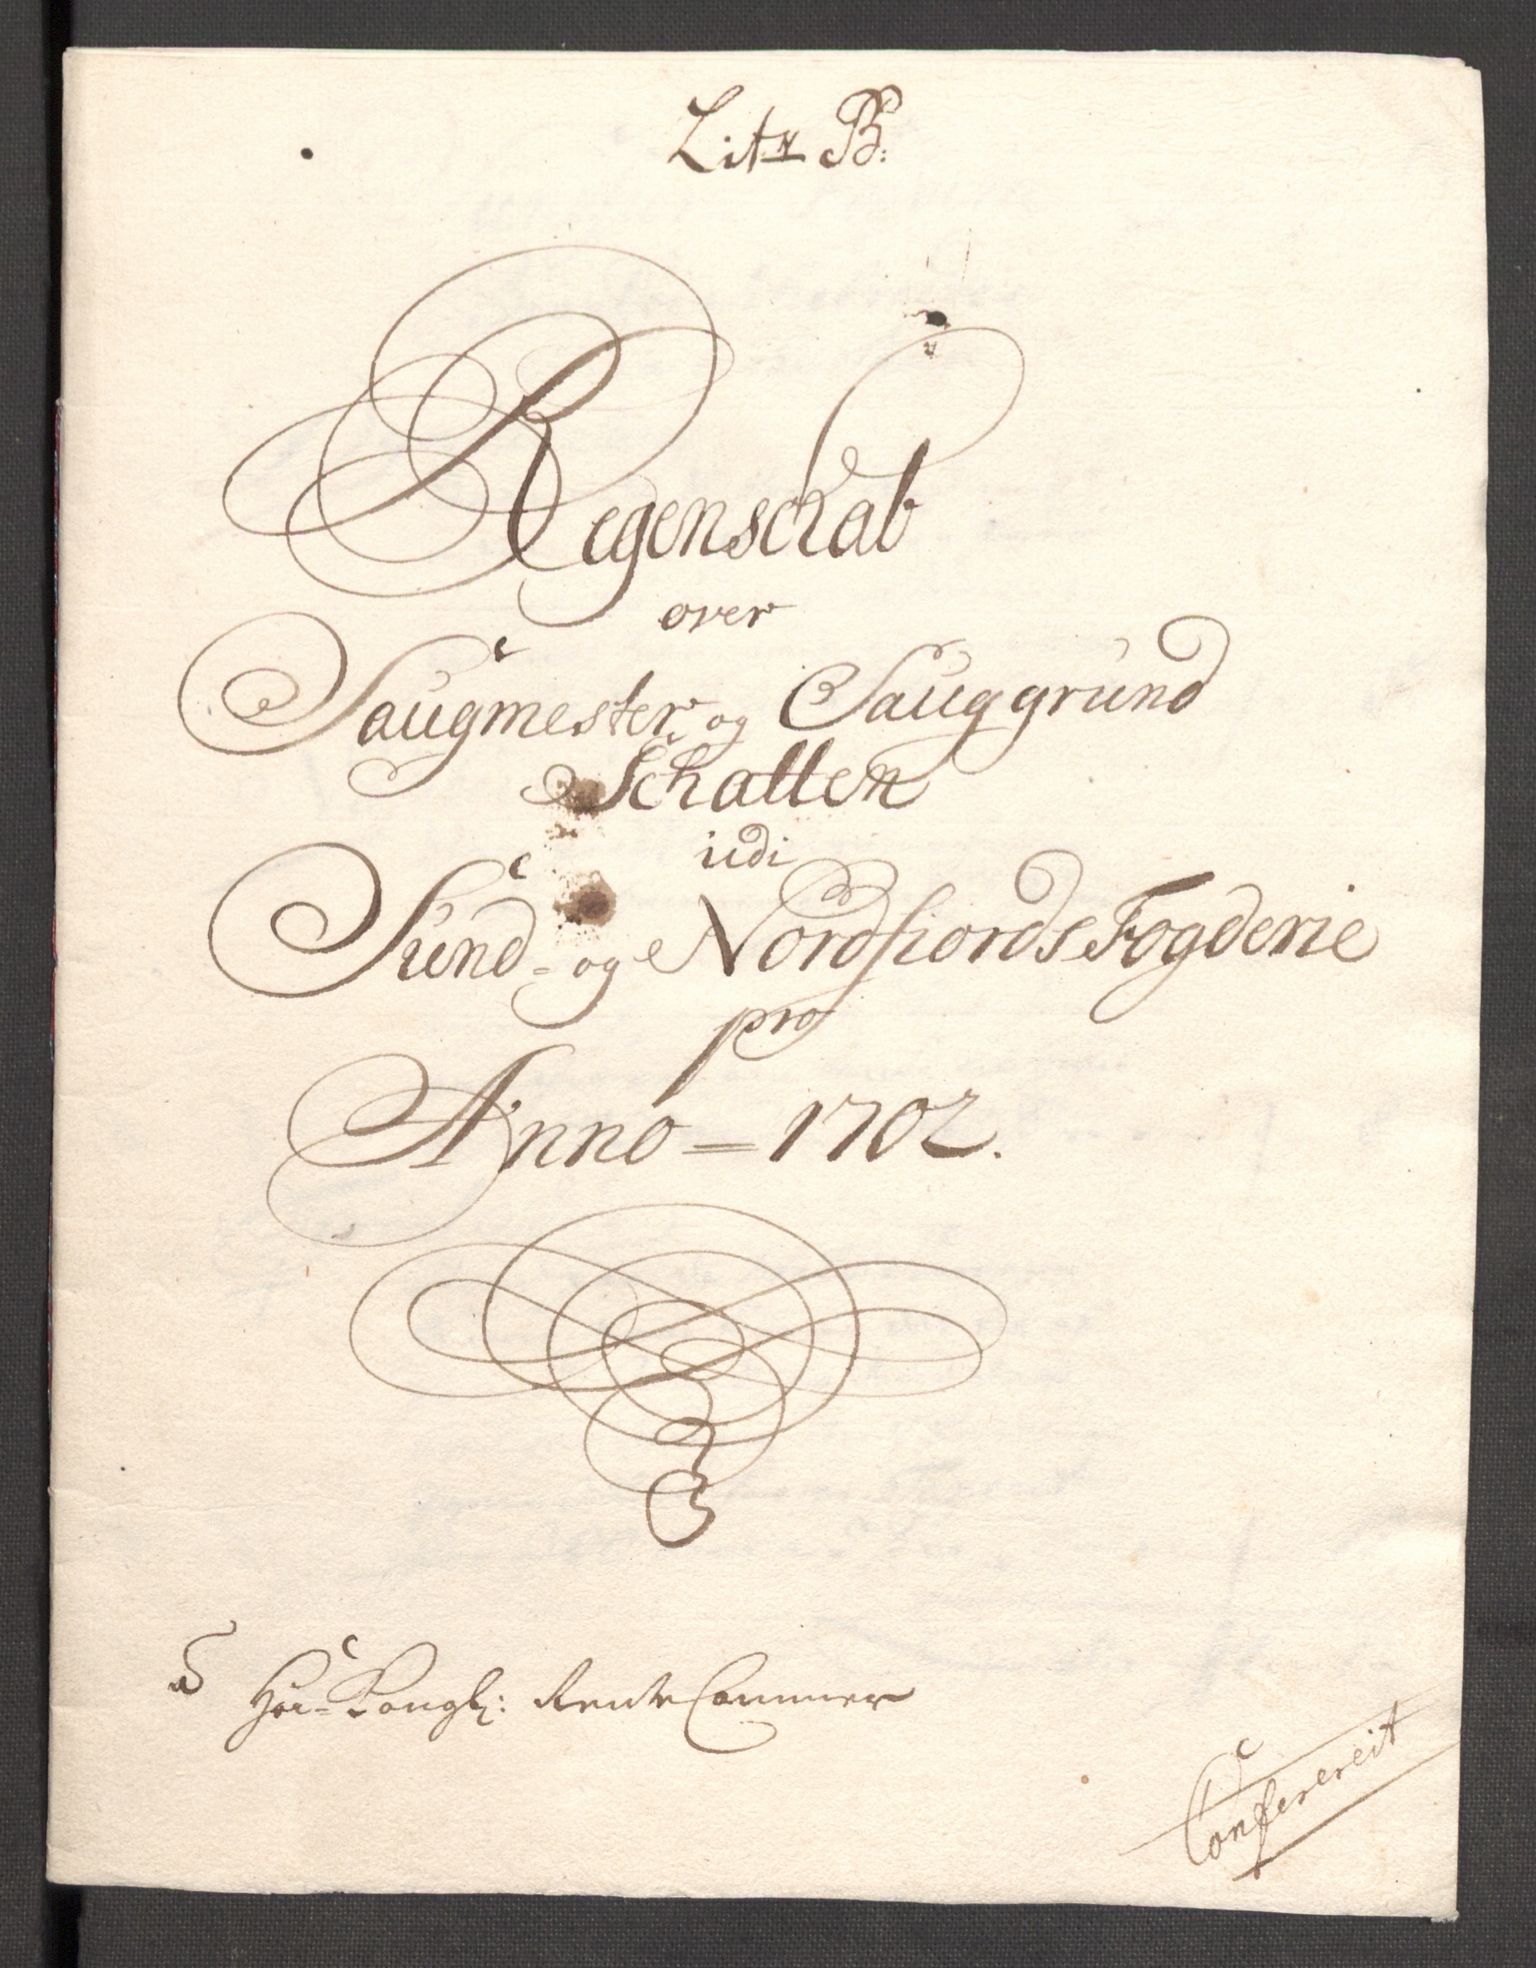 Litr B:
Regenschab
over
Saugmester og Sauggrund
Schatten
udi
Sund- og Nordfiords Fogderie
pro
Anno = 1702.
Kongl: Rente Cammer
Conferereit